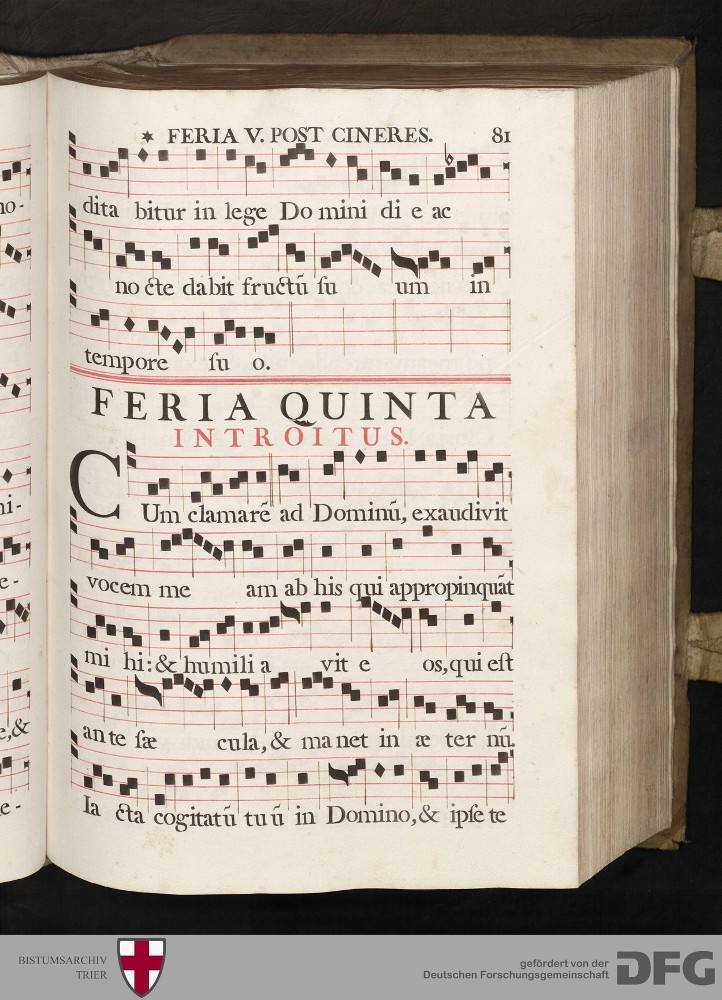 ✶ FERIA V. POST CINERES. 81
dita bitur in lege Do mini di e ac
no cte dabit fructū ſu um in
tempore ſu o.
FERIA QUINTA
INTROITUS.
CUm clamarē ad Dominū, exaudivit
vocem me am ab his qui appropinquāt
mi hi: & humili a vit e os, qui eſt
ante ſæ cula, & manet in æ ter nū.
Ia cta cogitatū tuū in Domino, & ipſe te
no-
ni-
e-
e, &
e-
BISTUMSARCHIV
TRIER
gefördert von der
Deutschen Forschungsgemeinschaft
DFG